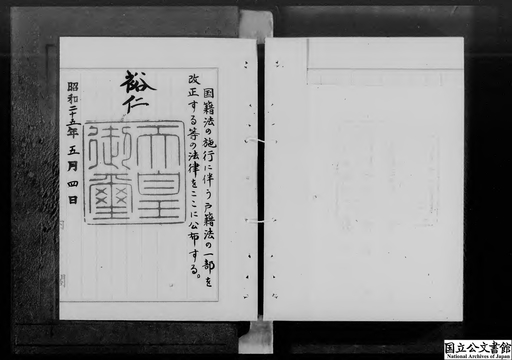 国籍法の施行に伴う戸籍法の一部を
改正する等の法律をここに公布する。
裕仁
天皇
御璽
昭和二十五年五月四日
国立公文書館
National Archives of Japan